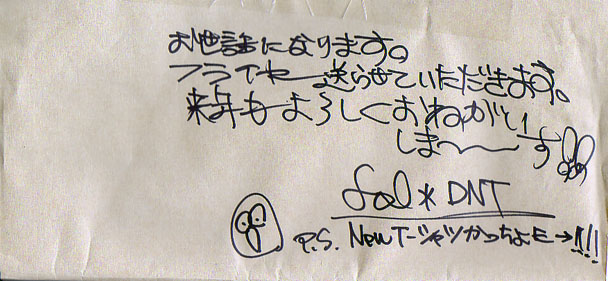 お世話になります。
フライヤー送らせていただきます。
来年もよろしくおねがい
しま〜〜す!!
Sol*DNT
P.S. NEW T-シャツかっちょE→!!!